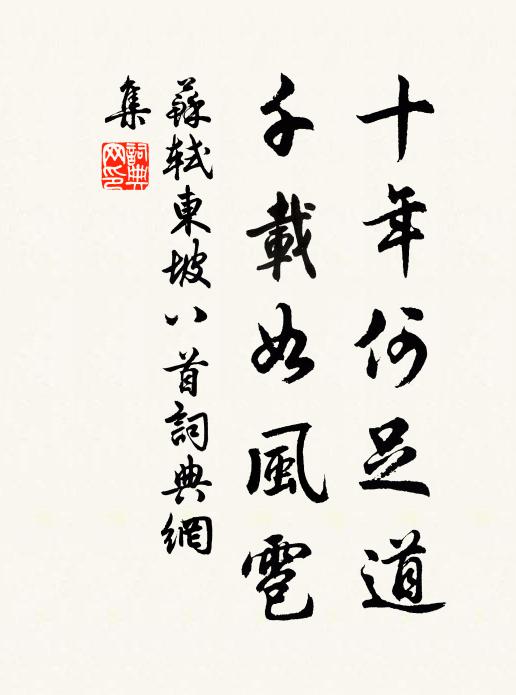 十年何足道
千載如風雹
蘇軾東坡八首詞典網
集
詞典
网印